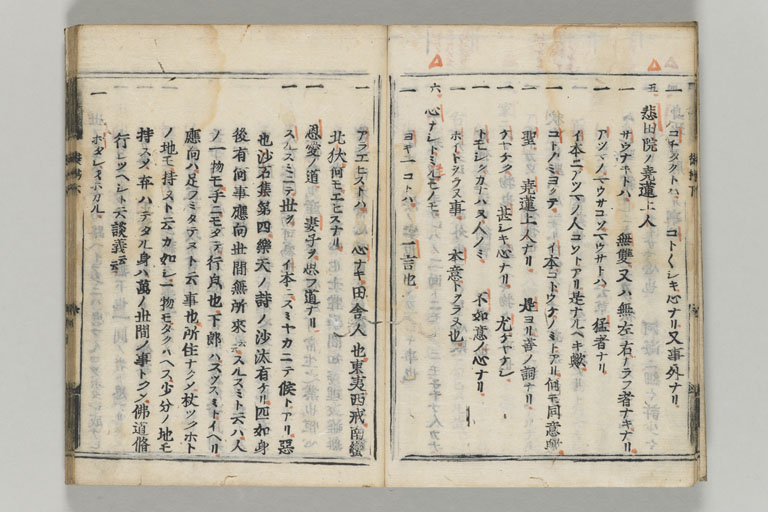 一 コチタクトハ コト〱シキ心ナリ又事外ナリ
五 悲田院ノ尭蓮上人
一 サウナキトハ 無雙又ハ無左右ノラフ者ナキナリ
一 アツマノヘウサコソヘウサトハ 猛者ナリ
イ本ニアツマノ人コソトアリ是ナルヘキ歟
一 コトノミヨクテ イ本コトウケノミトアリ何モ同意歟
一 聖 尭蓮上人ナリ 是ヨリ答ノ詞ナリ
一 ケヤケク 甚シキ心ナリ 尤ケヤケシ
一 トモシクカナハヌ人ノミ 不如意ノ心ナリ
一 ホイトクラス事 本意トクラヌ也
六 心ナシトミルモノモ
一 ヨキ一コトハ 一言也
一 アラエヒストハ 心ナキ田舎人也東夷西戎南蠻
北狄何モエヒスナリ
一 恩愛ノ道 妻子ヲ思フ道ナリ
一 スルスミニテ世ヲ イ本ニスミヤカニテ候トアリ惡
也沙石集第四樂天ノ詩ノ沙汰有ケリ匹如身
後有何事應向世間無所來云スルスミト云ハ人
ノ一物モ手ニモタテ行皃也下郎ハスヅスミトイヘリ
應向ハ足フミタテヌト云事也所住ナクシ杖ツクホト
ノ地モ持スト云カ如シ一物モタクハヘス少分ノ地モ
持スメ弃ハテタル身ハ萬ノ世間ノ事トクン佛道脩
行ヒツヘシト云談義云云
一 ホタシオホカル